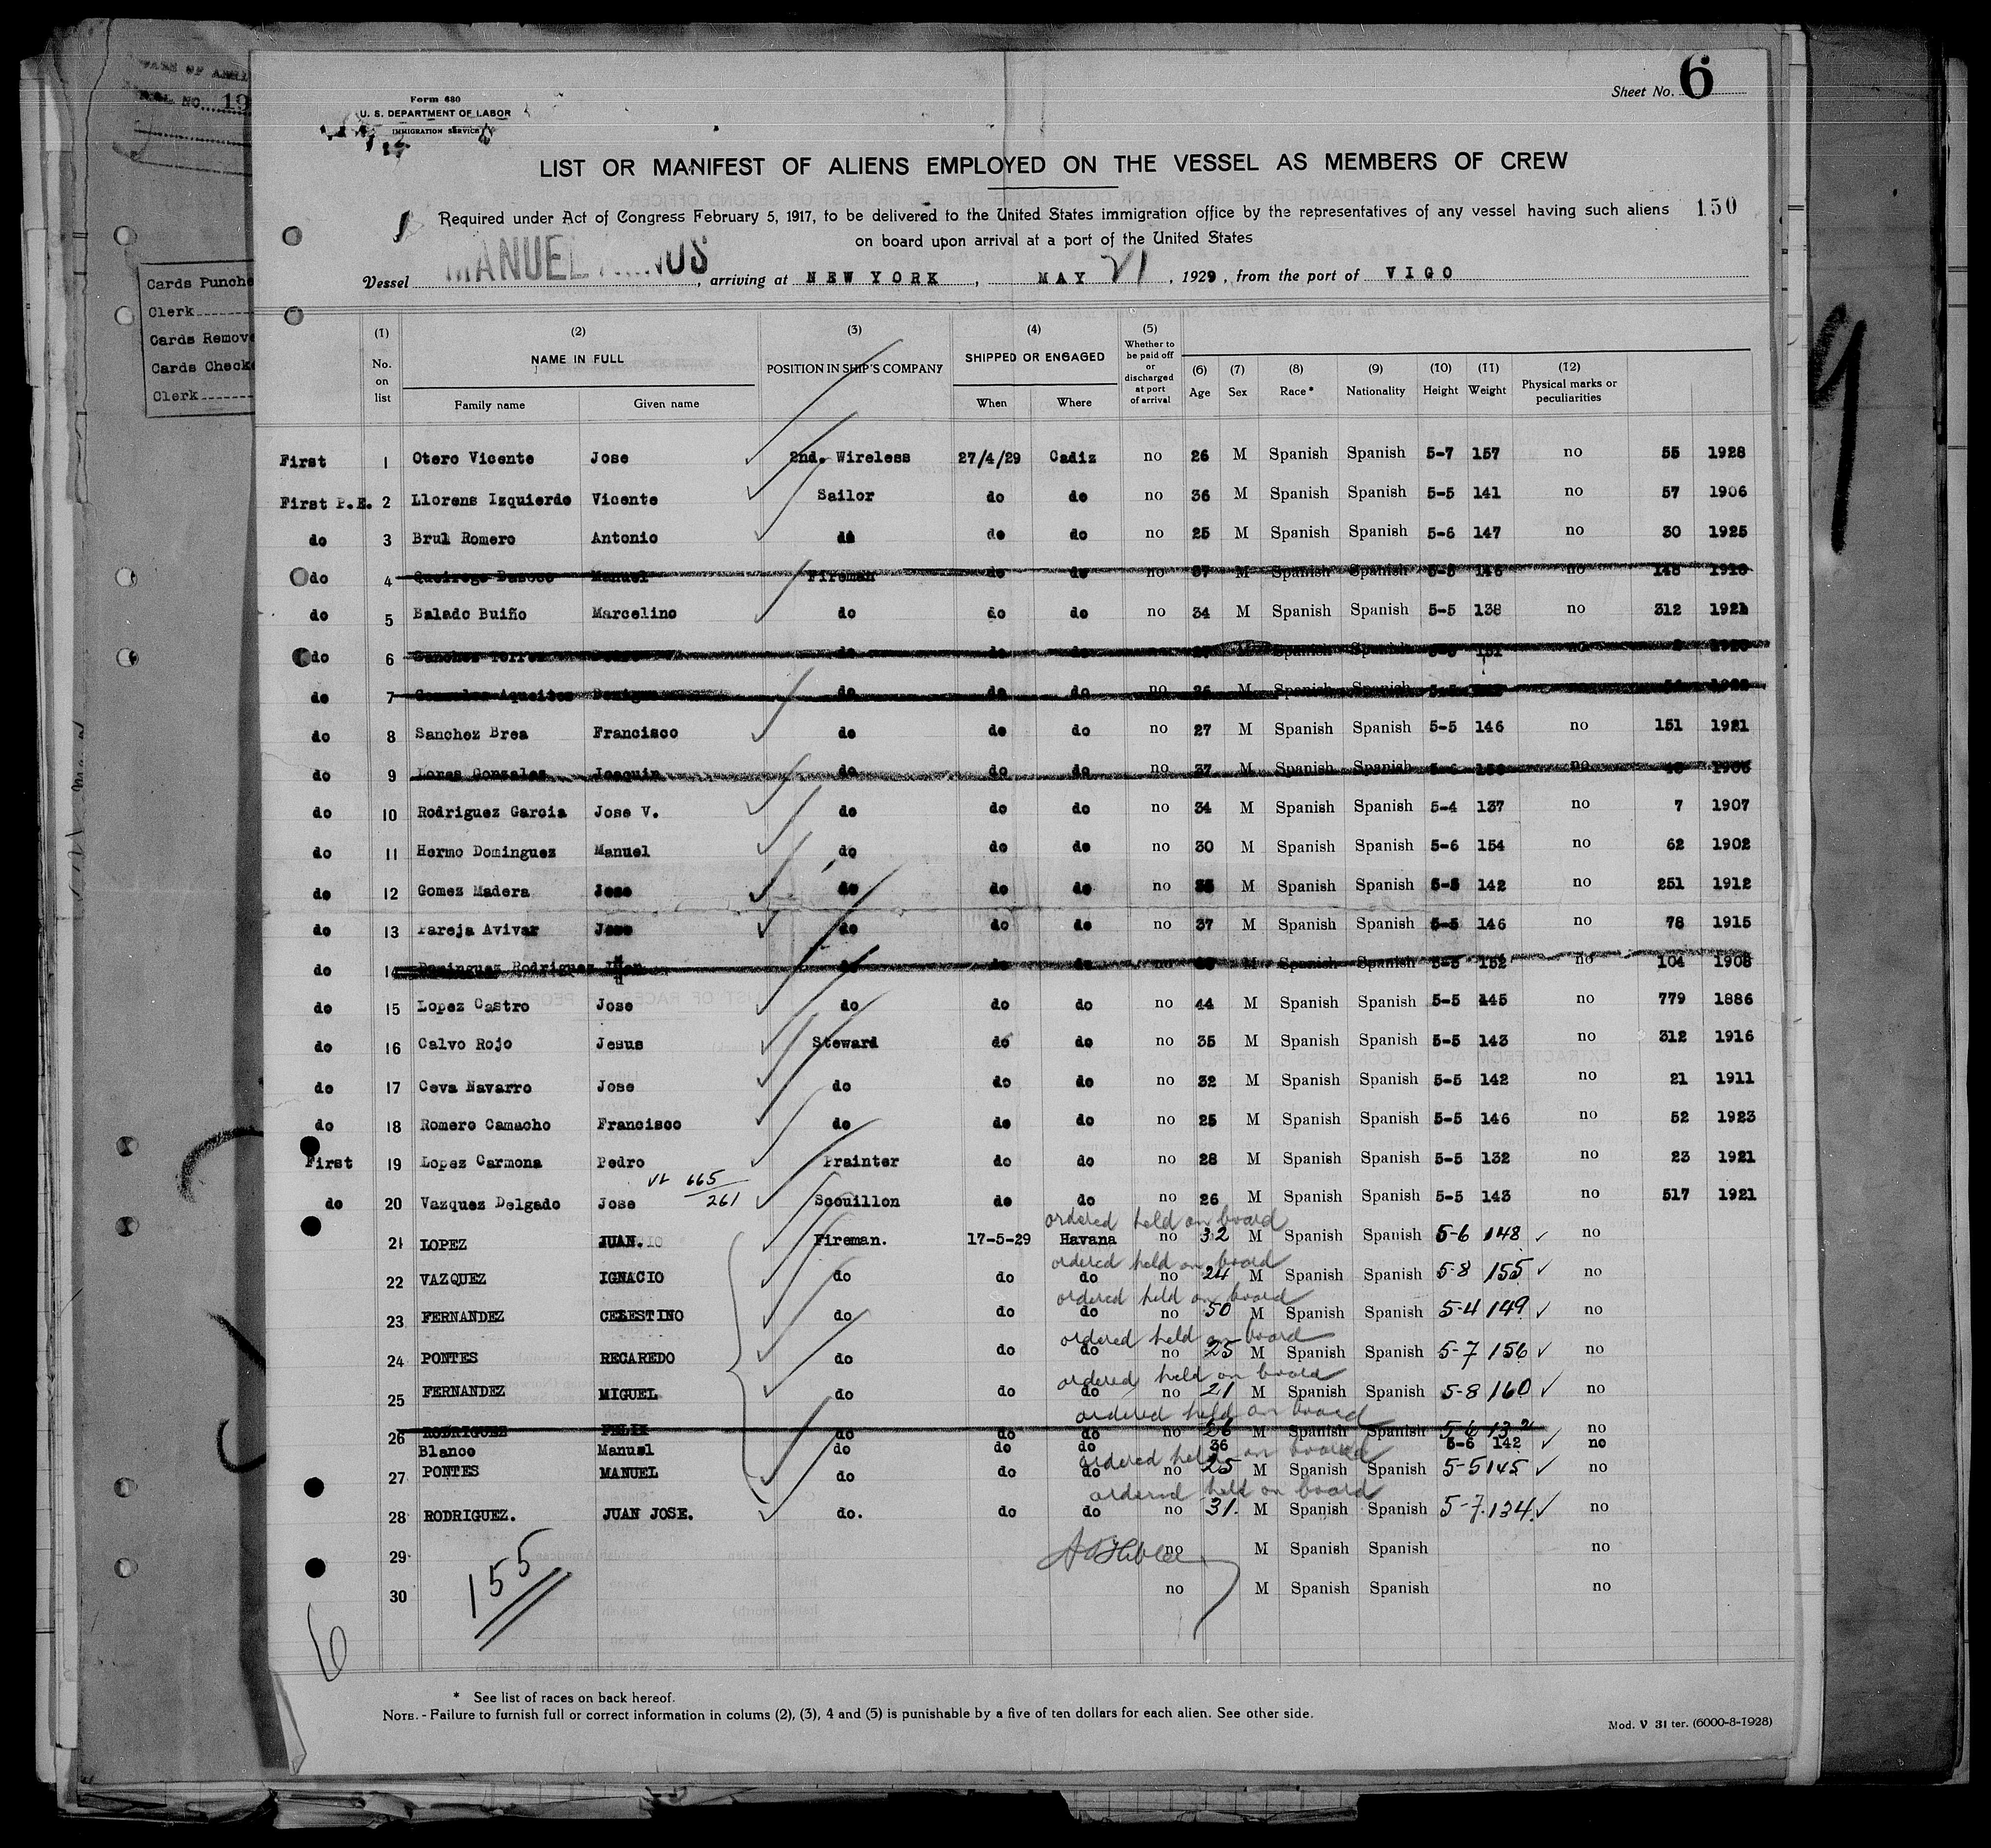 Sheet No. 6
Form 680
U. S. DEPARTMENT OF LABOR
IMMIGRATION SERVICE
LIST OR MANIFEST OF ALIENS EMPLOYED ON THE VESSEL AS MEMBERS OF CREW
Required under Act of Congress February 5, 1917, to be delivered to the United States immigration office by the representatives of any vessel having such aliens 150
on board upon arrival at a port of the United States
Vessel MANUEL ARNUS, arriving at NEW YORK, MAY 21, 1929, from the port of VIGO
Cards Punche
Clerk
Cards Remove
Cards Check
Clerk
(1) No. on list (2) NAME IN FULL Family name Given name (3) POSITION IN SHIP'S COMPANY (4) SHIPPED OR ENGAGED When Where (5) Whether to be paid off or discharged at port of arrival (6) Age (7) Sex (8) Race* (9) Nationality (10) Height (11) Weight (12) Physical marks or peculiarities
First 1 Otero Vicente Jose 2nd. Wireless 27/4/29 Cadiz no 26 M Spanish Spanish 5-7 157 no 55 1928
First P.E. 2 Llorens Izquierdo Vicente Sailor do do no 36 M Spanish Spanish 5-5 141 no 57 1906
do 3 Brul Romero Antonio do do do no 25 M Spanish Spanish 5-6 147 no 30 1925
do 4 Manuel Fireman do do no 37 M Spanish Spanish 5-5 146 no
do 5 Balado Buiño Marcelino do do do no 34 M Spanish Spanish 5-5 138 no 312 1921
do 6 Sanchez Torres do do do M Spanish Spanish 151
do 7 Gonzalez Aqueitos Benigno do do do no 26 M Spanish Spanish
do 8 Sanchez Brea Francisco do do do no 27 M Spanish Spanish 5-5 146 no 151 1921
do 9 Gonzales Joaquin do do do no 37 M Spanish Spanish no 1906
do 10 Rodriguez Garcia Jose V. do do do no 34 M Spanish Spanish 5-4 137 no 7 1907
do 11 Hermo Dominguez Manuel do do do no 30 M Spanish Spanish 5-6 154 no 62 1902
do 12 Gomez Madera Jose do do do no 35 M Spanish Spanish 5-5 142 no 251 1912
do 13 Pareja Avivar Jose do do do no 37 M Spanish Spanish 5-5 146 no 78 1915
do 14 Dominguez Rodriguez Juan do do do no M Spanish Spanish 5-5 152 no 104 1908
do 15 Lopez Castro Jose do do do no 44 M Spanish Spanish 5-5 145 no 779 1886
do 16 Calvo Rojo Jesus Steward do do no 35 M Spanish Spanish 5-5 143 no 312 1916
do 17 Ceva Navarro Jose do do do no 32 M Spanish Spanish 5-5 142 no 21 1911
do 18 Romero Camacho Francisco do do do no 25 M Spanish Spanish 5-5 146 no 52 1923
First 19 Lopez Carmona Pedro Prainter do do no 28 M Spanish Spanish 5-5 132 no 23 1921
665/261
do 20 Vazquez Delgado Jose Scouillon do do no 26 M Spanish Spanish 5-5 143 no 517 1921
ordered held on board
21 LOPEZ JUAN. Fireman. 17-5-29 Havana no 32 M Spanish Spanish 5-6 148 no
ordered held on board
22 VAZQUEZ IGNACIO do do do no 24 M Spanish Spanish 5-8 155 no
ordered held on board
23 FERNANDEZ CELESTINO do do do no 50 M Spanish Spanish 5-4 149 no
ordered held on board
24 PONTES RECAREDO do do do no 25 M Spanish Spanish 5-7 156 no
ordered held on board
25 FERNANDEZ MIGUEL do do do no 21 M Spanish Spanish 5-8 160 no
ordered held on board
26 RODRIGUEZ FELIX do do do no 26 M Spanish Spanish 5-6 132 no
Blanco Manuel do do do 36 5-6 142 no
ordered held on board
27 PONTES MANUEL do do do no 25 M Spanish Spanish 5-5 145 no
ordered held on board
28 RODRIGUEZ. JUAN JOSE. do. do do no 31. M Spanish Spanish 5-7. 134 no
29 no M Spanish Spanish no
30 no M Spanish Spanish no
155
6
* See list of races on back hereof.
NOTE. - Failure to furnish full or correct information in colums (2), (3), 4 and (5) is punishable by a five of ten dollars for each alien. See other side.
Mod. V 31 ter. (6000-8-1928)